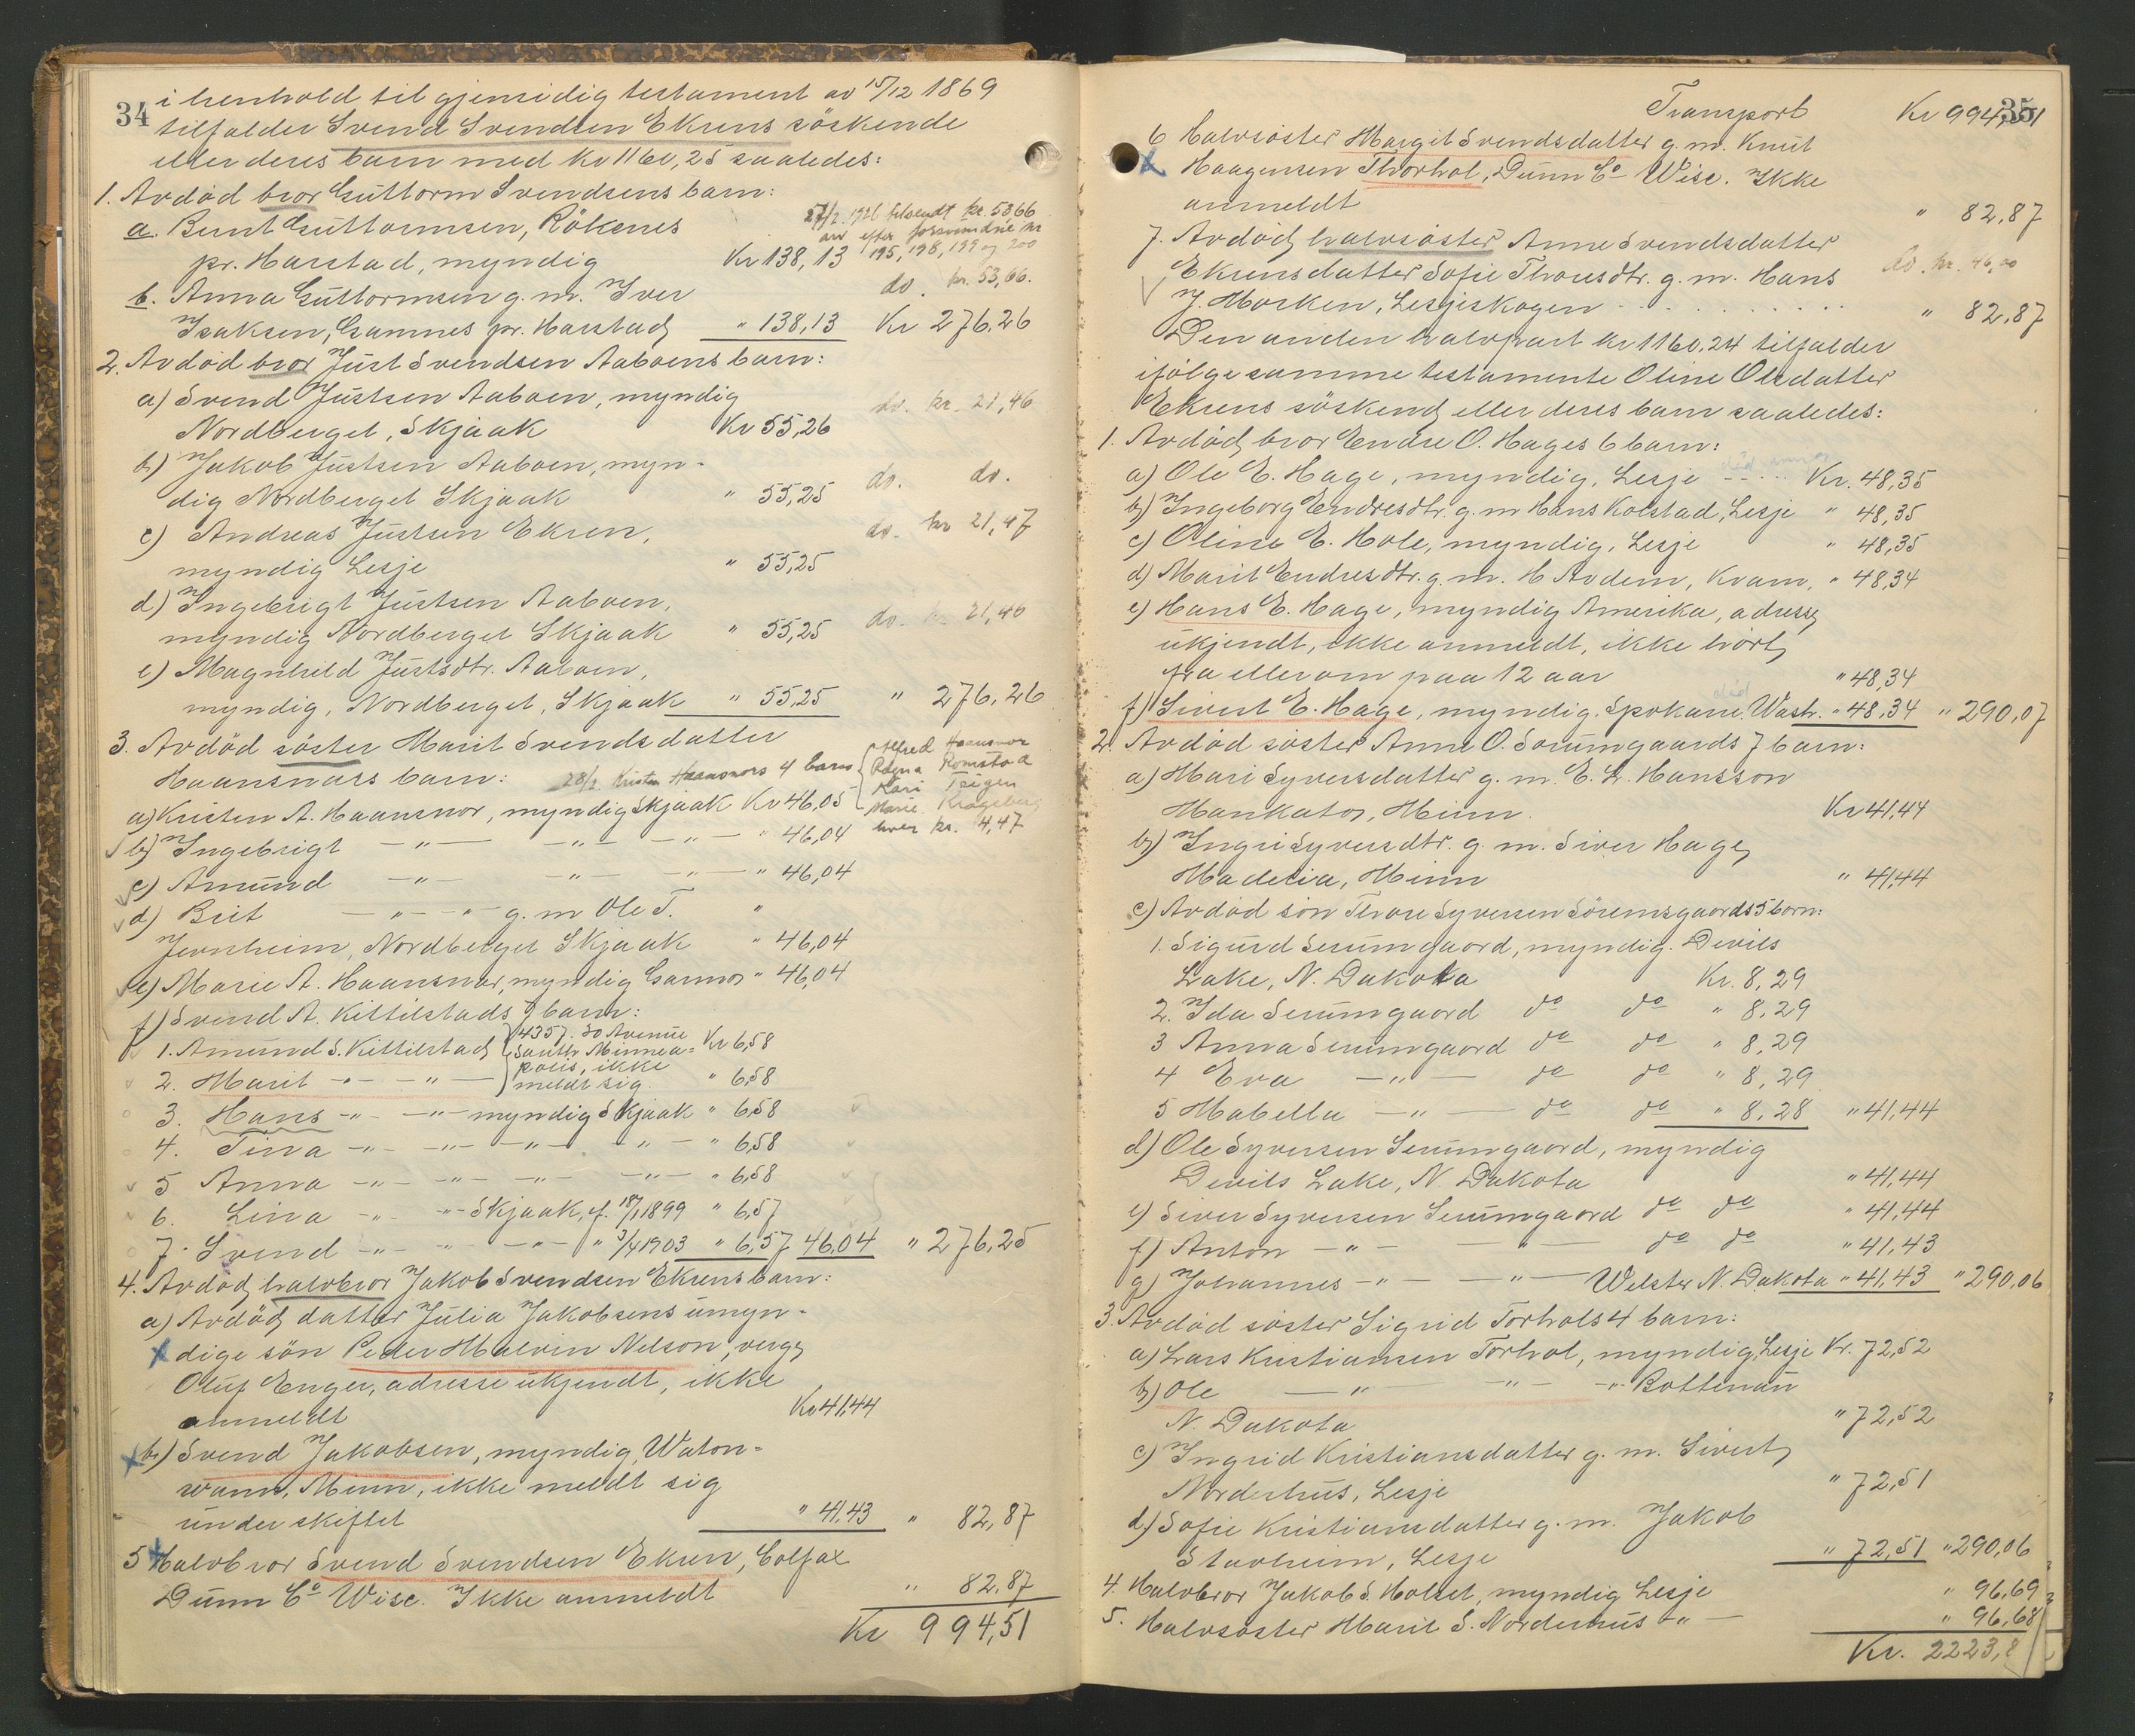 34
i henhold til gjensidig testament av 15/12 1869
tilfalder Svend Svendsen Ekrens söskende
eller deres barn med Kr 1160,25 saaledes:
1. Avdöd bror Guttorm Svendsens barn:
a. Bernt Guttormsen, Rökenes 27/2 1926 tilsendt kr. 53,66
pr. Harstad, myndig Kr 138,13 arv efter forsvundne nr 195, 198, 199 og 200
b. Anna Guttormsen g. m. Iver do. kr. 53,66.
Isaksen, Gamnes pr. Harstad " 138,13 Kr 276,26
2. Avdöd bror Just Svendsen Aaboens barn:
a) Svend Justsen Aaboen, myndig do. kr. 21,46
Nordberget, Skjaak Kr 55,26
b) Jakob Justsen Aaboen, myn-
dig Nordberget Skjaak " 55,25 do. do.
c) Andreas Justsen Ekren, do. kr 21,47
myndig Lesje " 55,25
d) Ingebrigt Justsen Aaboen,
myndig Nordberget Skjaak " 55,25 do. kr 21,46
e) Magnhild Justsdtr. Aaboen,
myndig, Nordberget, Skjaak " 55,25 " 276,26
3. Avdöd söster Marit Svendsdatter
Haansnars barn: 28/2 Kristen Haansnars 4 barn { Alfred Haansnar
Ragna Romstad
Kari Teigen
Marie Krageberg
hver kr. 4,47
a) Kristen A. Haansnar, myndig Skjaak Kr 46,05
b) Ingebrigt —"— —"— —"— " 46,04
c) Amund —"— —"— —"— " 46,04
d) Brit —"—"— g. m Ole T. "
Jernheim, Nordberget Skjaak " 46,04
e) Marie A. Haansnar, myndig Garmo " 46,04
f) Svend A. Kittilstads 7 barn:
1. Amund S. Kittilstad { 4357. 30 Avenue
South Minnea=
polis, ikke
meldt sig. Kr 6,58
2. Marit —"— —"— " 6,58
3. Hans —"— —"— myndig Skjaak " 6,58
4. Tina —"— —"— —"— —"— " 6,58
5 Anna —"— —"— —"— —"— " 6,58
6. Lina —"— —"— Skjaak, f. 18/1 1899 " 6,57
7. Svend —"— —"— —"— " 3/4 1903 " 6,57 46,04 " 276,25
4. Avdöd halvbror Jakob Svendsen Ekrens barn:
a) Avdöd datter Julia Jakobsens umyn-
dige sön Peder Malvin Nelson, verge
Oluf Enger, adresse ukjendt, ikke
anmeldt Kr 41,44
b) Svend Jakobsen, myndig, Waton=
wann, Minn, ikke meldt sig
under skiftet " 41,43 " 82,87
5 Halvbror Svend Svendsen Ekren, Colfax
Dunn Co Wisc. Ikke anmeldt " 82,87
Kr 994,51
35
Transport Kr 994,51
6 Halvsöster Margit Svendsdatter g. m. Knut
Haagensen Thorhol, Dunn Co Wisc. Ikke
anmeldt " 82,87
7. Avdöd halvsöster Anne Svendsdatter
Ekrens datter Sofie Thoresdtr. g. m. Hans do. kr. 46,00
J. Morken, Lesjeskogen " 82,87
Den anden halvpart kr 1160,24 tilfalder
ifölge samme testamente Oline Olsdatter
Ekrens söskend eller deres barn saaledes:
1. Avdöd bror Endre O. Hages 6 barn:
a) Ole E. Hage, myndig, Lesje Kr. 48,35
b) Ingeborg Endresdtr. g. m Hans Kolstad, Lesje " 48,35
c) Oline E. Hole, myndig, Lesje " 48,35
d) Marit Endresdtr. g. m. H Avdem, Kvam, " 48,34
e) Hans E. Hage, myndig Amerika, adresse
ukjendt, ikke anmeldt, ikke hört
fra eller om paa 12 aar " 48,34
f) Sivert E. Hage, myndig, Spokane. Wash. " 48,34 " 290,07
2. Avdöd söster Anne O. Sörumgaards 7 barn:
a) Mari Syversdatter g. m. E. L. Hansson
Mankato, Minn. Kr 41,44
b) Ingri Syversdtr. g. m. Siver Hage,
Madelia, Minn " 41,44
c) Avdöd sön Thore Syversen Sörumsgaards 5 barn:
1. Sigurd Serumgaard, myndig. Devils
Lake, N. Dakota Kr. 8,29
2. Ida Serumgaard do do " 8,29
3 Anna Serumgaard do do " 8,29
4 Eva —"— do do " 8,29
5 Mabella —"— do do " 8,28 " 41,44
d) Ole Syversen Serumgaard, myndig
Devils Lake, N. Dakota " 41,44
e) Siver Syversen Serumgaard do do " 41,44
f) Anton —"— —"— do do " 41,43
g) Johannes —"— —"— Webster N. Dakota " 41,43 " 290,06
3. Avdöd söster Sigrid Torhols 4 barn:
a) Lars Kristiansen Torhol, myndig, Lesje Kr. 72,52
b) Ole —"— —"— —"— Bottenau
N. Dakota " 72,52
c) Ingrid Kristiansdatter g. m. Sivert
Norderhus, Lesje " 72,51
d) Sofie Kristiansdatter g. m. Jakob
Stavheim, Lesje " 72,51 " 290,06
4. Halvbror Jakob S. Holset, myndig Lesje " 96,69
5. Halvsöster Marit S. Norderhus —"— " 96,68
Kr. 2223,8